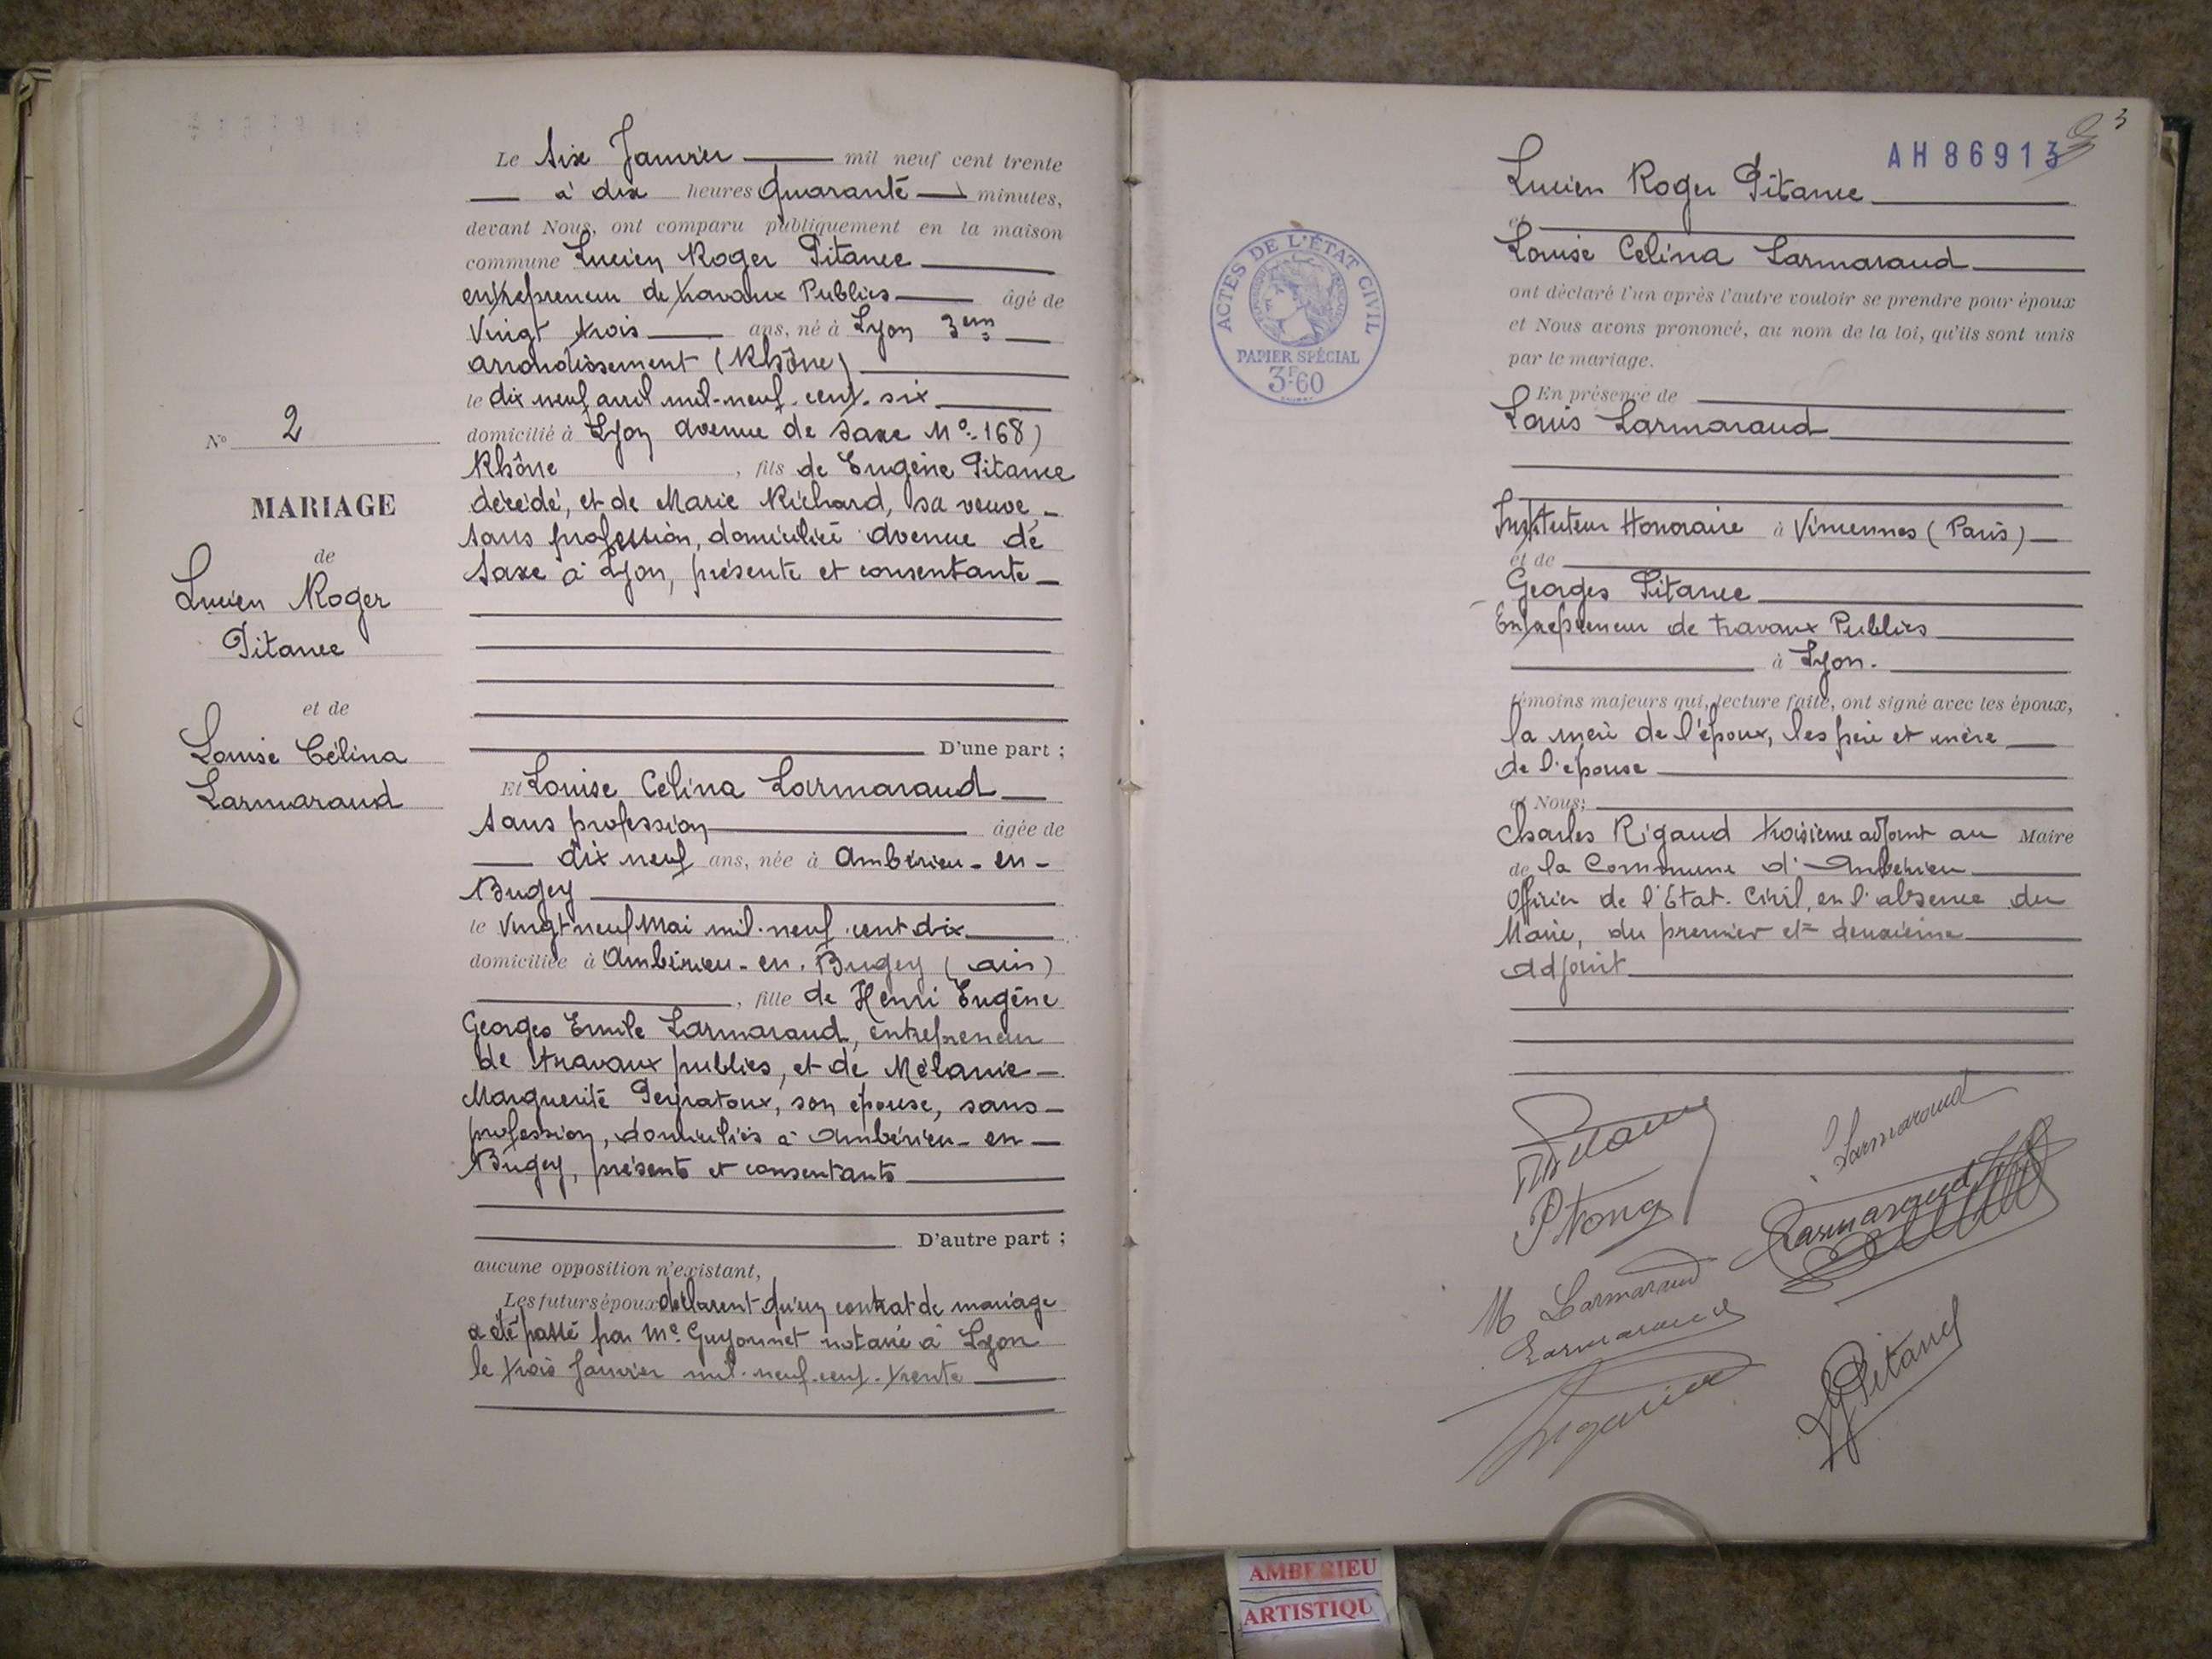 Le Six Janvier mil neuf cent trente
à dix heures Quarante minutes,
devant Nous, ont comparu publiquement en la maison
commune Lucien Roger Pitance
entrepreneur de travaux Publics âgé de
Vingt trois ans, né à Lyon 3em
arrondissement (Rhône)
le dix neuf avril mil-neuf-cent-six
domicilié à Lyon avenue de Saxe No 168)
Rhône, fils de Eugène Pitance
décédé, et de Marie Richard, sa veuve
sans profession, domiciliée avenue de
Saxe à Lyon, présente et consentante
D'une part ;
Et Louise Célina Larmaraud
sans profession âgée de
dix neuf ans, née à Ambérieu-en-
Bugey
le Vingt neuf Mai mil-neuf-cent dix
domiciliée à Ambérieu-en-Bugey (ain)
, fille de Henri Eugène
Georges Emile Larmaraud, entrepreneur
de travaux publics, et de Mélanie
Marguerite Peyratoux, son épouse, sans
profession, domiciliés à Ambérieu-en-
Bugey, présents et consentants
D'autre part ;
aucune opposition n'existant,
Les futurs époux déclarent qu'un contrat de mariage
a été passé par Me Guyonnet notaire à Lyon
le trois Janvier mil-neuf-cent-trente
No 2
MARIAGE
de
Lucien Roger
Pitance
et de
Louise Célina
Larmaraud
3
AH 86913
ACTES DE L'ÉTAT CIVIL
PAPIER SPÉCIAL
3F60
Lucien Roger Pitance
et
Louise Celina Larmaraud
ont déclaré l'un après l'autre vouloir se prendre pour époux
et Nous avons prononcé, au nom de la loi, qu'ils sont unis
par le mariage.
En présence de
Louis Larmaraud
Instituteur Honoraire à Vincennes (Paris)
et de
Georges Pitance
Entrepreneur de travaux Publics
à Lyon.
témoins majeurs qui, lecture faite, ont signé avec les époux,
la mère de l'époux, les père et mère
de l'épouse
et Nous;
Charles Rigaud troisième adjoint au Maire
de la Commune d'Ambérieu
Officier de l'Etat-Civil, en l'absence du
Maire, du premier et deuxième
adjoint
Larmaraud
Larmaraud
M Larmaraud
Larmaraud
Pitance
AMBERIEU
ARTISTIQU